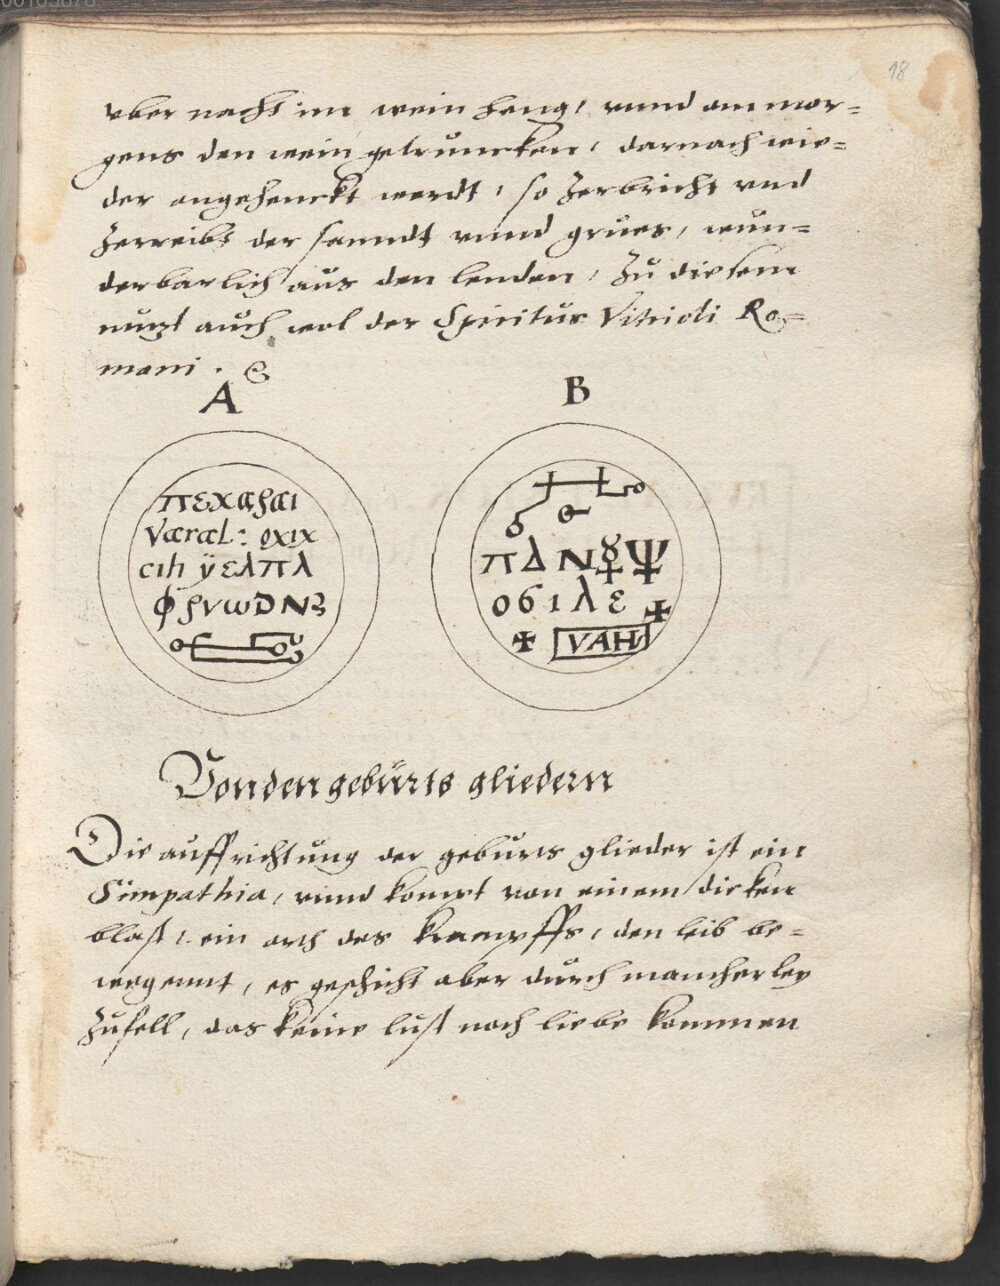 18
vber nacht im wein heng, vnnd am mor=
gens den wein getruncken, darnach wie=
der angehenckt werdt, so zerbricht vnd
zerreibt der sanndt vnnd grües, wun=
derbarlich aus den lenden, Zu diesem
nutzt auch wol der Spiritus Vitrioli Ro=
mani.
A B
πεχαραι
Væræl: oχιχ
cιh ÿελπλ
φρνωDN3
πΔN
061λε
VAH
Von den geburts gliedern
Die auffrichtung der geburts glieder ist ein
Simpathia, vnnd kompt von einem dicken
blast, ein arth des krampffs, den leib be=
wegennt, es geschicht aber durch mancherley
zufell, das keine lust noch liebe kommen